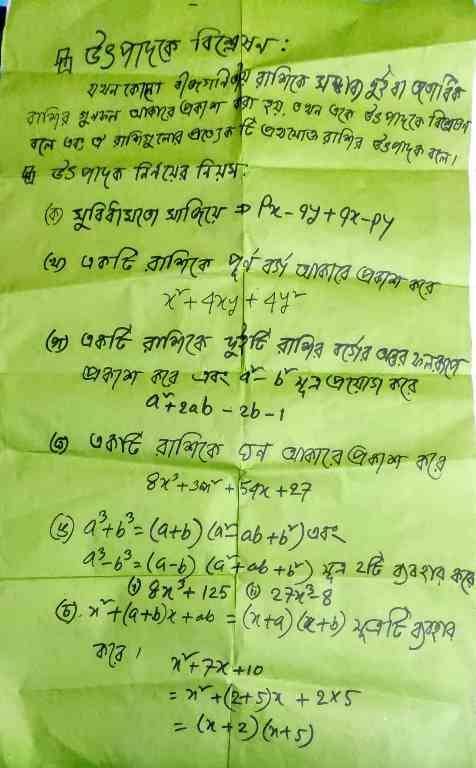 উৎপাদকে বিশ্লেষণ:
যখন কোনো বীজগাণিতীয় রাশিকে সম্ভাব্য দুই বা ততোধিক
রাশির গুণফল আকারে প্রকাশ করা হয়, তখন একে উৎপাদকে বিশ্লেষণ
বলে এবং ঐ রাশিগুলোর প্রত্যেকটি প্রথমোক্ত রাশির উৎপাদক বলে।
উৎপাদক নির্ণয়ের নিয়ম:
(ক) সুবিধামতো সাজিয়ে ⇒ Px - qy + qx - py
(খ) একটি রাশিকে পূর্ণ বর্গ আকারে প্রকাশ করে
x² + 4xy + 4y²
(গ) একটি রাশিকে দুইটি রাশির বর্গের অন্তর ফলরূপে
প্রকাশ করে এবং a² - b² সূত্র প্রয়োগ করে
a² + 2ab - 2b - 1
একটি রাশিকে ঘন আকারে প্রকাশ করে
8x³ + + 54x + 27
(ঙ) a³ + b³ = (a+b) (a² - ab + b²) এবং
a³ - b³ = (a-b) (a² + ab + b²) সূত্র ২টি ব্যবহার করে
8x³ + 125 27x³ - 8
(চ) x² + (a+b)x + ab = (x+a) (x+b) সূত্রটি ব্যবহার
করে।
x² + 7x + 10
= x² + (2+5)x + 2×5
= (x+2) (x+5)